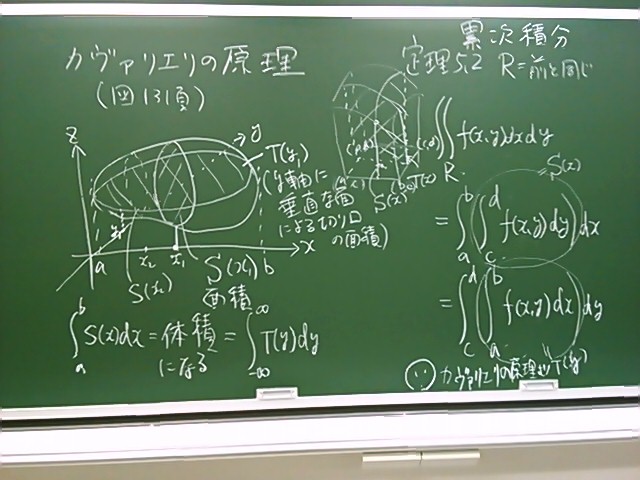 カヴァリエリの原理
(図131頁)
z
y
T(y₁)
(y軸に
垂直な面
による切り口
の面積)
x
a
x₂
x₁
b
S(x₂)
S(x₁)
面積
∫ₐᵇ S(x)dx = 体積 = ∫₋∞^∞ T(y)dy
になる
累次積分
定理5.2 R=前と同じ
∬ f(x,y)dxdy
R
S(x)
T(x)
= S(x)
= ∫ₐᵇ (∫꜀ᵈ f(x,y)dy) dx
= ∫꜀ᵈ (∫ₐᵇ f(x,y)dx) dy
T(y)
カヴァリエリの原理